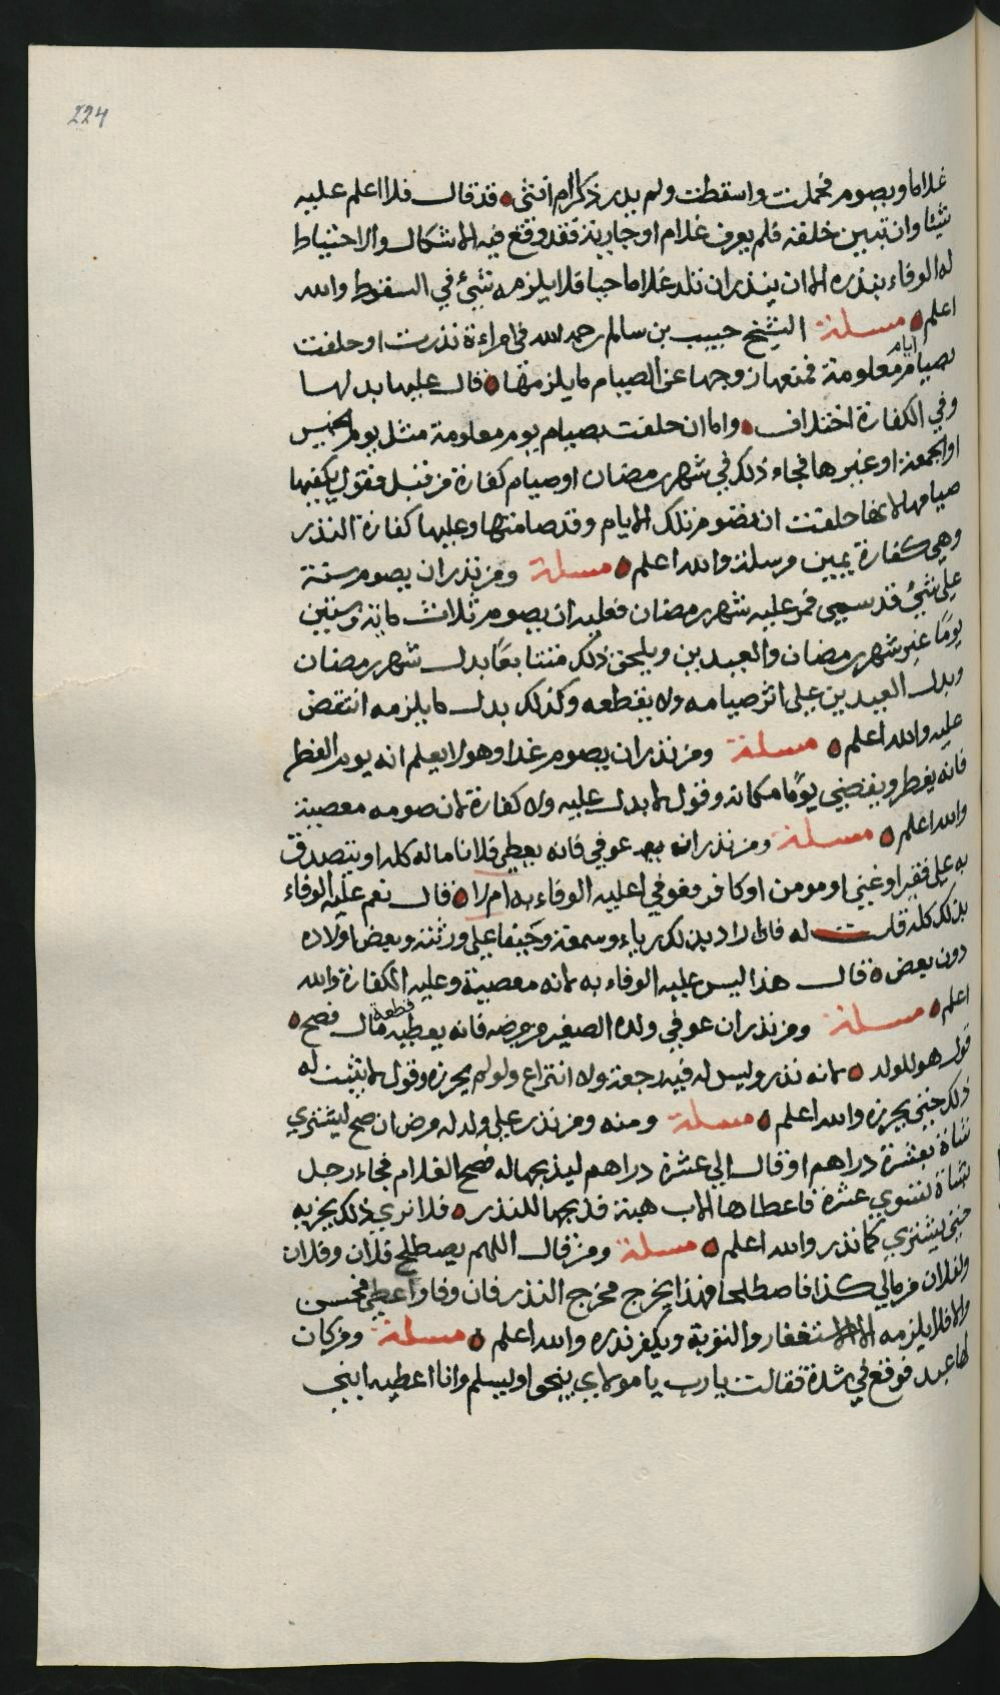 224
غلاما ويصوم فحملت واسقطت ولم يدر ذكرا ام انثى قد قال فلا اعلم عليه
شيئا وان تبين خلقه فلم يعرف غلام او جارية فقد وقع فيه الاشكال والاحتياط
له الوفاء بنذره الا ان ينذر ان تلد غلاما حيا فلا يلزمه شيء في السقوط والله
اعلم مسئلة الشيخ حبيب بن سالم رحمه الله في امراءة نذرت او حلفت
بصيام ايام معلومة فمنعها زوجها عن الصيام ما يلزمها قال عليها بدلها
وفي الكفارة اختلاف واما ان حلفت بصيام يوم معلومة مثل يوم الخميس
او الجمعة او غيرها فجاء ذلك في شهر رمضان او صيام كفارة من قبل فقول يكفيها
صيامها لانها حلفت ان تصوم تلك الايام وقد صامتها وعليها كفارة النذر
وهي كفارة يمين مرسلة والله اعلم مسئلة ومن نذر ان يصوم سنة
على شيء قد سمى فمر عليه شهر رمضان فعليه ان يصوم ثلاث مائة وستين
يومًا غير شهر رمضان والعيدين ويلحق ذلك متتابعًا بدل شهر رمضان
وبدل العيدين على اثر صيامه ولا يقطعه وكذلك بدل ما يلزمه انتقض
عليه والله اعلم مسئلة ومن نذر ان يصوم غدا وهو لا يعلم انه يوم الفطر
فانه يفطر ويقضي يومًا مكانه وقول لا بدل عليه ولا كفارة لان صومه معصية
والله اعلم مسئلة ومن نذر انه عوفي فانه يعطي فلانا ماله كله او يتصدق
به على فقير او غني او مومن او كافر فعوفي اعليه الوفاء به ام لا قال نعم عليه الوفاء
بذلك كله قلت له فان اراد بذلك رياء وسمعة وحيفا على ورثته وبعض اولاده
دون بعض قال هذا ليس عليه الوفاء به لانه معصية وعليه الكفارة والله
اعلم مسئلة ومن نذر ان عوفي ولده الصغير من مرضه فانه يعطيه قطعة مال فصح
قول هو للولد لانه نذر وليس له فيه رجعة ولا انتزاع ولو لم يحرزه وقول لا يثبت له
ذلك حتى يحرزه والله اعلم مسئلة ومنه ومن نذر على ولد له مرض ان صح ليشتري
شاة بعشرة دراهم او قال الي عشرة دراهم ليذبحها له فصح الغلام فجاء رجل
بشاة تسوي عشرة فاعطاها الاب هبة فذبحها للنذر فلا نرى ذلك يجزيه
حتى يشتري كما نذر والله اعلم مسئلة ومن قال اللهم يصطلح فلان وفلان
ولفلان من مالي كذا فاصطلحا فهذا يخرج مخرج النذر فان وفا واعطى فحسن
والا فلا يلزمه الا الاستغفار والتوبة ويكفر نذره والله اعلم مسئلة ومن كان
لها عبد فوقع في شدة فقالت يا رب يا مولاي ينجو او يسلم وانا اعطيه ابني